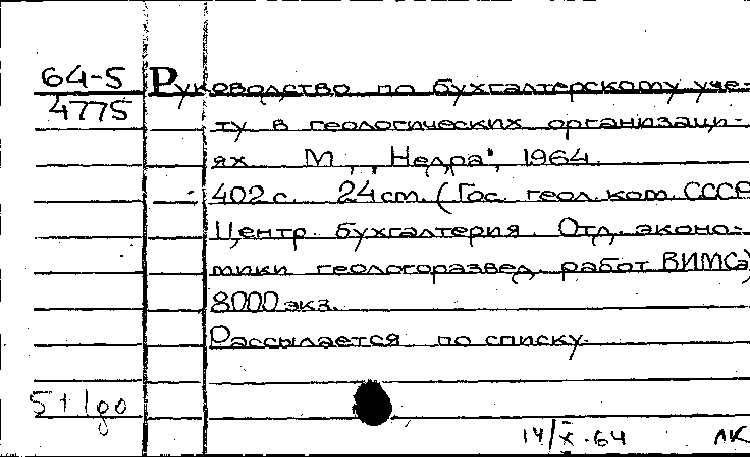 64-5
4775
Руководство по бухгалтерскому уче-
ту в геологических организаци-
ях М., „Недра", 1964.
402 с. 24 см. (Гос. геол. ком. СССР
Центр. бухгалтерия. Отд. эконо-
мики геологоразвед. работ ВИМСа)
8000 экз.
Рассылается по списку.
5+1до
14/X-64 ЛК